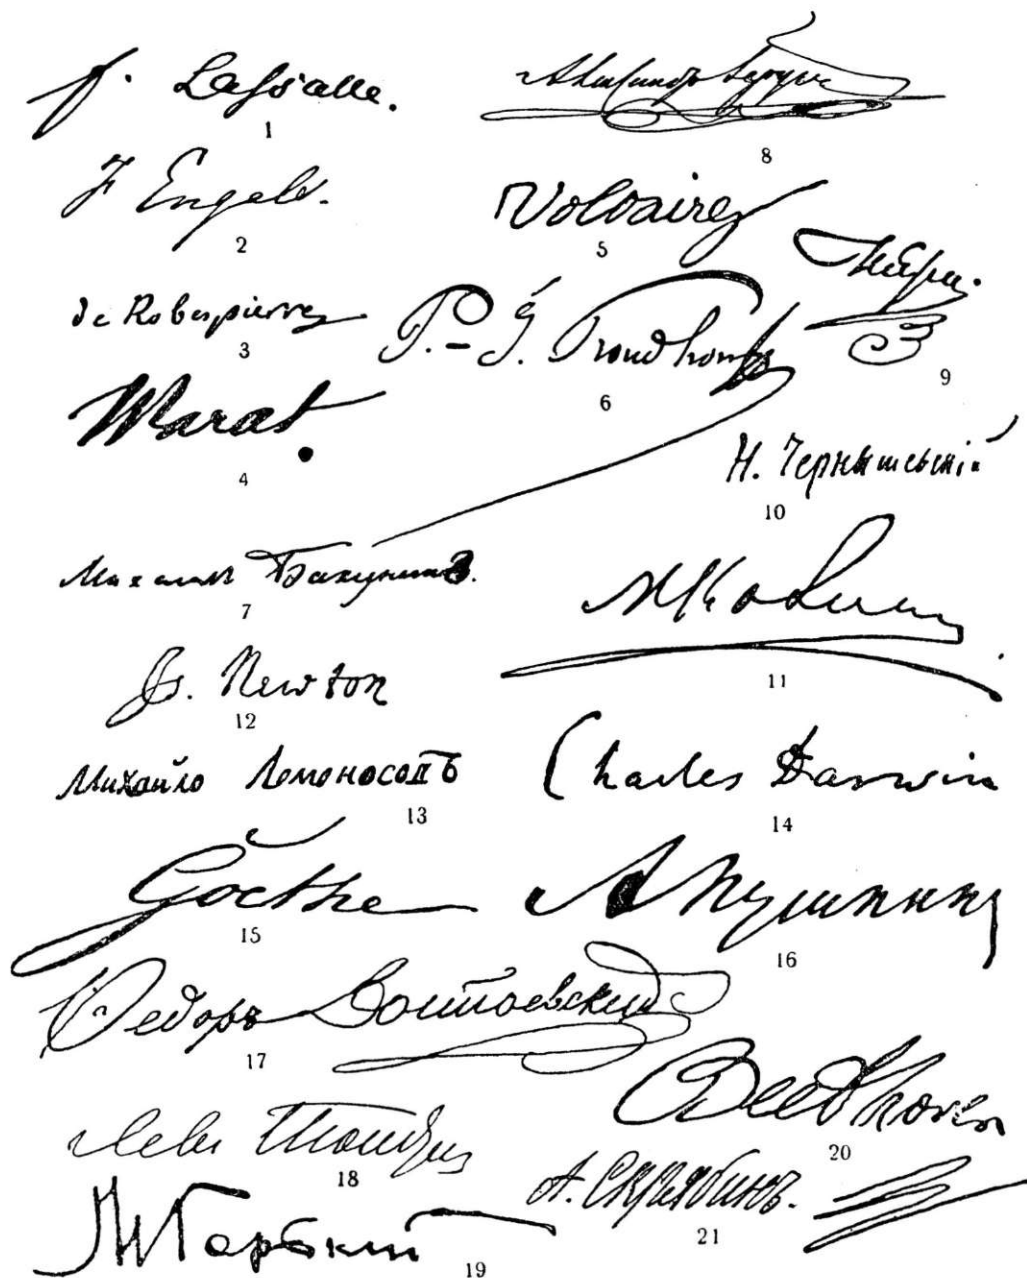 F. Lassalle.
1
8
F Engels.
2
Voltaire
5
de Robespierre
3
P.-J. Proudhon
6
9
Marat.
4
Н. Чернышевскій
10
Михаилъ Бакунинъ.
7
11
Is. Newton
12
Михайло Ломоносовъ
13
Charles Darwin
14
Goethe
15
А Пушкинъ
16
Ѳедоръ Достоевскій
17
Beethoven
20
Левъ Толстой
18
А. Скрябинъ.
21
М Горький
19